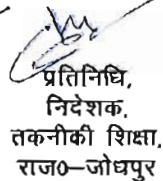 प्रतिनिधि,
निदेशक,
तकनीकी शिक्षा,
राज०–जोधपुर